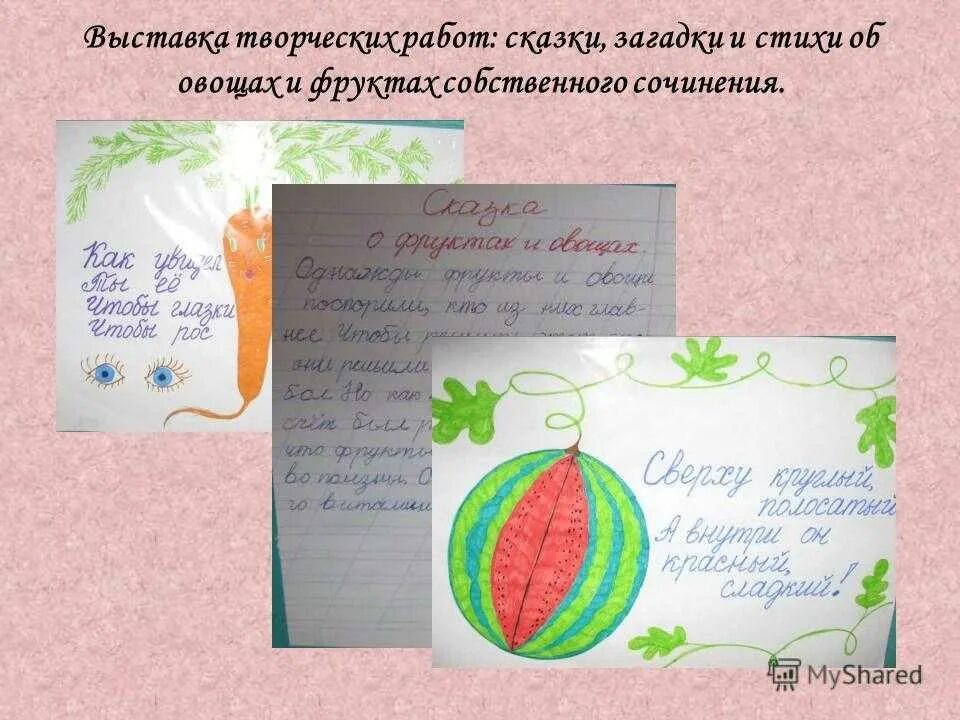 Выставка творческих работ: сказки, загадки и стихи об
овощах и фруктах собственного сочинения.
Как увидел
Ты её
Чтобы глазки
Чтобы рос
Сказка
о фруктах и овощах.
Однажды фрукты и овощи
поспорили, кто из них глав-
нее. Чтобы
они решили
бол. Но как
счёт был
что фрукты
во пользы. О
го витамин
Сверху круглый,
полосатый
А внутри он
красный,
сладкий!
MyShared